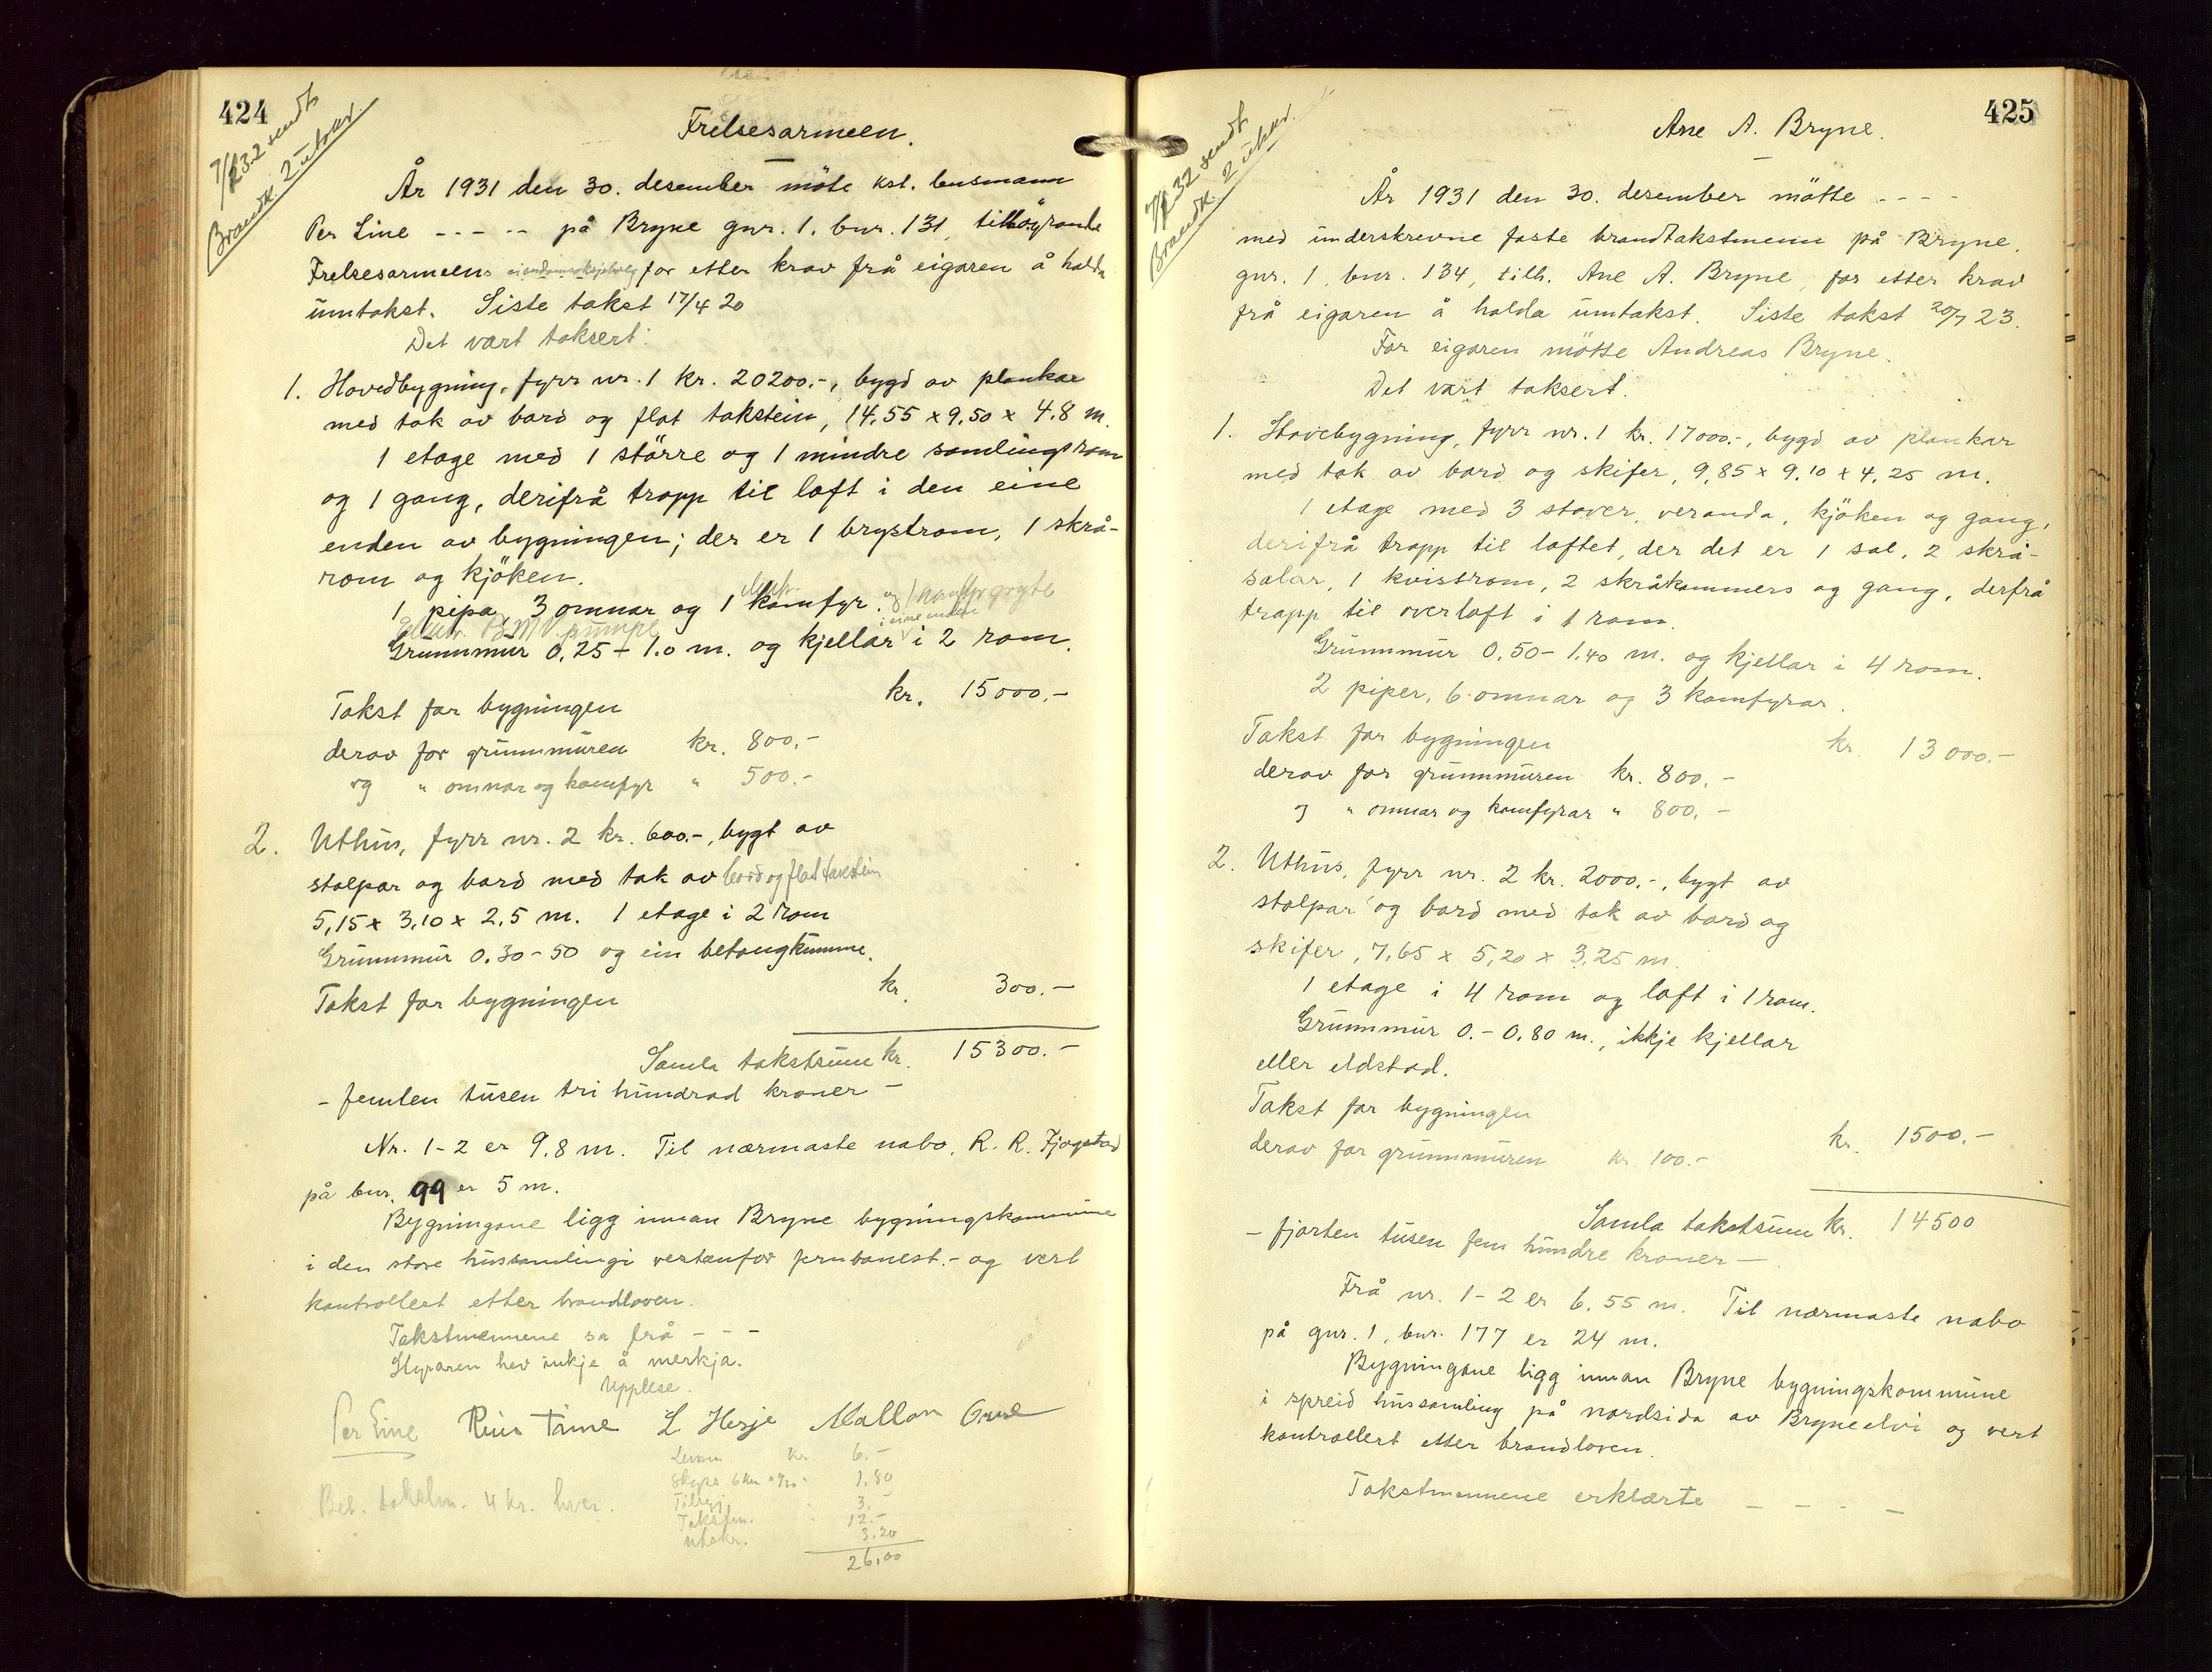 424
7/1 32 sendt
Brandk. 2 utskr.
Frelsesarmeen.
År 1931 den 30. desember möte kst. lensmann
Per Line - - - - på Bryne gnr. 1. bnr. 131, tilhöyrande
Frelsesarmeens eiendomsskjötsely for etter krav frå eigaren å halda
umtakst. Siste takst 17/4 20
Det vart taksert:
1. Hovedbygning, fyrr nr. 1 kr. 20200.-, bygd av plankar
med tak av bord og flat takstein, 14,55 x 9,50 x 4,8 m.
1 etage med 1 större og 1 mindre samlingsrom
og 1 gang, derifrå trapp til loft i den eine
enden av bygningen; der er 1 brystrom, 1 skrå-
rom og kjöken.
1 pipa, 3 omnar og 1 komfyr. og 1
pumpe
i eine enden
Grunnmur 0,25 - 1.0 m. og kjellar i 2 rom.
Takst for bygningen kr. 15000.-
derav for grunnmuren kr. 800.-
og " omnar og komfyr " 500.-
2. Uthus, fyrr nr. 2 kr. 600.-, bygt av
stolpar og bord med tak av bord og flat takstein
5,15 x 3,10 x 2,5 m. 1 etage i 2 rom
Grunnmur 0.30 - 50 og ein betongkumme.
Takst for bygningen kr. 300.-
Samla takstsum kr. 15300.-
- femten tusen tri hundrad kroner -
Nr. 1-2 er 9.8 m. Til nærmaste nabo, R. R. Fjogstad
på bnr. 99 er 5 m.
Bygningane ligg innan Bryne bygningskommune
i den store hussamlingi vestanfor jernbanest.- og vert
kontrollert etter brandloven.
Takstmennene sa frå - - -
Styraren hev inkje å merkja.
Upplese.
Per Line Reins Time L. Hesje Mallon
Bet. takstm. 4 kr. hver.
Lensm kr 6.-
Skyss 6 km 1,80
3.-
Takstm. 12.-
Utskr. 3.20
26,00
425
7/1 32 sendt
Brandk. 2 utskr.
Ane A. Bryne.
År 1931 den 30. desember mötte - - - -
med underskrevne faste brandtakstmenn på Bryne,
gnr. 1, bnr. 134, tilh. Ane A. Bryne, for etter krav
frå eigaren å halda umtakst. Siste takst 20/7 23.
For eigaren mötte Andreas Bryne.
Det vart taksert.
1. Stovebygning, fyrr nr. 1 kr. 17000.-, bygd av plankar
med tak av bord og skifer, 9,85 x 9,10 x 4,25 m.
1 etage med 3 stover, veranda, kjöken og gang,
derifrå trapp til loftet, der det er 1 sal, 2 skrå-
salar, 1 kvistrom, 2 skråkammers og gang, derfrå
trapp til overloft i 1 rom.
Grunnmur 0,50 - 1,40 m. og kjellar i 4 rom.
2 piper, 6 omnar og 3 komfyrar.
Takst for bygningen kr. 13000.-
derav for grunnmuren kr. 800.-
og " omnar og komfyrar " 800.-
2. Uthus, fyrr nr. 2 kr. 2000.-, bygt av
stolpar og bord med tak av bord og
skifer, 7,65 x 5,20 x 3,25 m.
1 etage i 4 rom og loft i 1 rom.
Grunnmur 0.- 0.80 m., ikkje kjellar
eller eldstad.
Takst for bygningen kr. 1500.-
derav for grunnmuren kr. 100.-
Samla takstsum kr. 14500
- fjorten tusen fem hundre kroner -
Frå nr. 1-2 er 6.55 m. Til nærmaste nabo
på gnr. 1, bnr. 177 er 24 m.
Bygningane ligg innan Bryne bygningskommune
i spreid hussamling på nordsida av Bryneelvi og vert
kontrollert etter brandloven.
Takstmennene erklærte - - - -